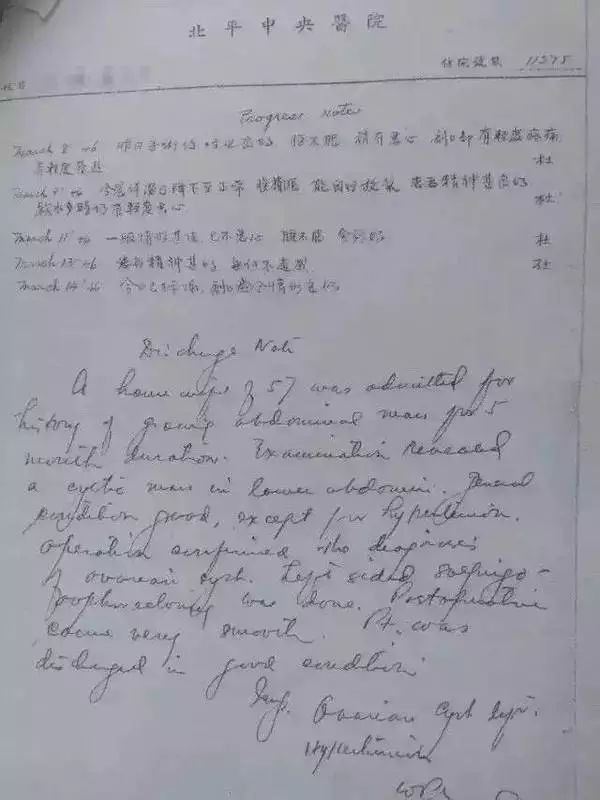 北平中央醫院
住院號數 11295
Progress Notes
March 8 '46 昨日手術後 腹不脹 稍有惡心 創口部有輕度疼痛
杜
March 9 '46 今晨体溫已降下至正常 腹稍脹 能自行放氣 患者精神甚良好
飲水多時仍有輕度惡心 杜
March 11 '46 一般情形甚佳 已不惡心 腹不脹 杜
March 13 '46 患者精神甚好 杜
March 14 '46 今日已拆線 創口
Discharge Note
A housewife of 57 was admitted for
history of growing abdominal mass for 5
month duration. Examination revealed
a cystic mass in lower abdomen. General
condition good, except for hypertension.
Operation confirmed the diagnosis
of ovarian cyst. Left sided salpingo-
oophorectomy was done. Postoperative
course very smooth. Pt. was
discharged in good condition.
Ovarian Cyst left.
Hypertension